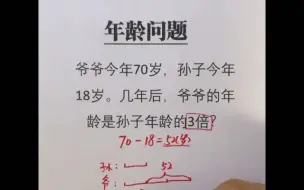 年龄问题
爷爷今年70岁，孙子今年
18岁。几年后，爷爷的年
龄是孙子年龄的3倍?
70-18=52(岁)
孙:
52
爷: